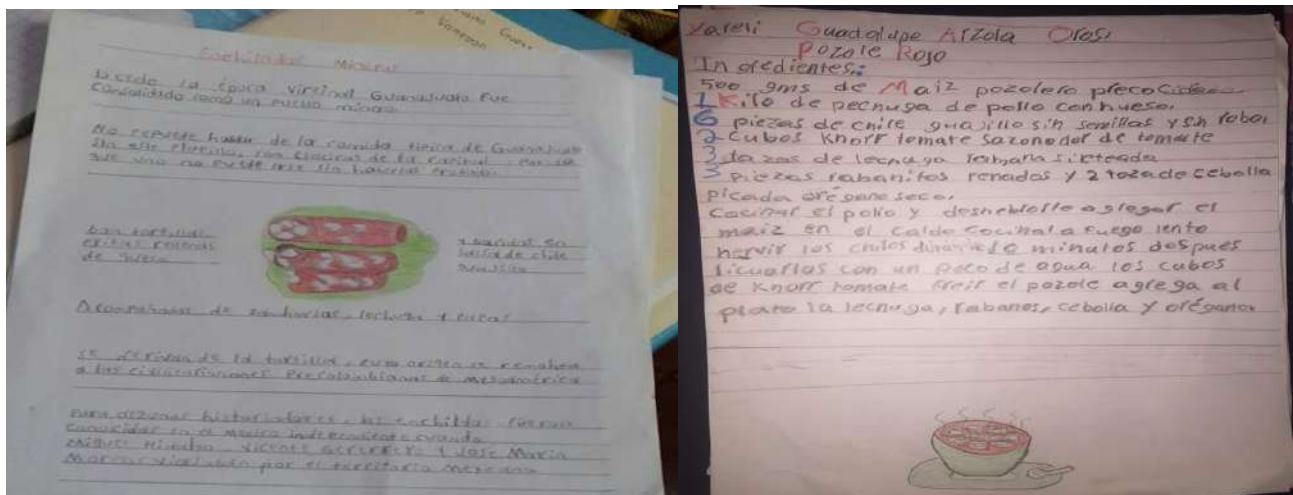 Enchiladas Mineras
Desde la época virreinal Guanajuato fue
Consolidado como un pueblo minero
No se puede hablar de la comida tipica de Guanajuato
sin este platillo, son clasicas de la capital por
que uno no puede irse sin haberlas probado
Son tortillas
fritas rellenas
de queso
y bañadas en
salsa de chile
guajillo
Acompañadas de zanahorias, lechuga y papas
se derivan de la tortilla, cuyo origen se remonta
a las civilizaciones Precolombianas de mesoamérica
Para algunos historiadores, las enchiladas fueron
Conocidas en el México independiente cuando
Miguel Hidalgo, Vicente Guerrero y Jose María
Morelos viajaban por el territorio
Yareli Guadalupe Arzola Oros
Pozole Rojo
Ingredientes:
500 gms de Maiz pozolero precocido
1 Kilo de pechuga de pollo con hueso.
6 piezas de chile guajillo sin semillas y sin rabo
2 Cubos Knorr tomate sazonador de tomate
3 tazas de lechuga romana fileteada
3 piezas rabanitos y 2 taza de cebolla
picada orégano seco.
Cocinar el pollo y agregar el
maiz en el caldo cocinar a fuego lento
hervir los chiles minutos despues
licuarlas con un poco de agua los cubos
de Knorr tomate freir el pozole agrega al
plato la lechuga, rabanos, cebolla y orégano.